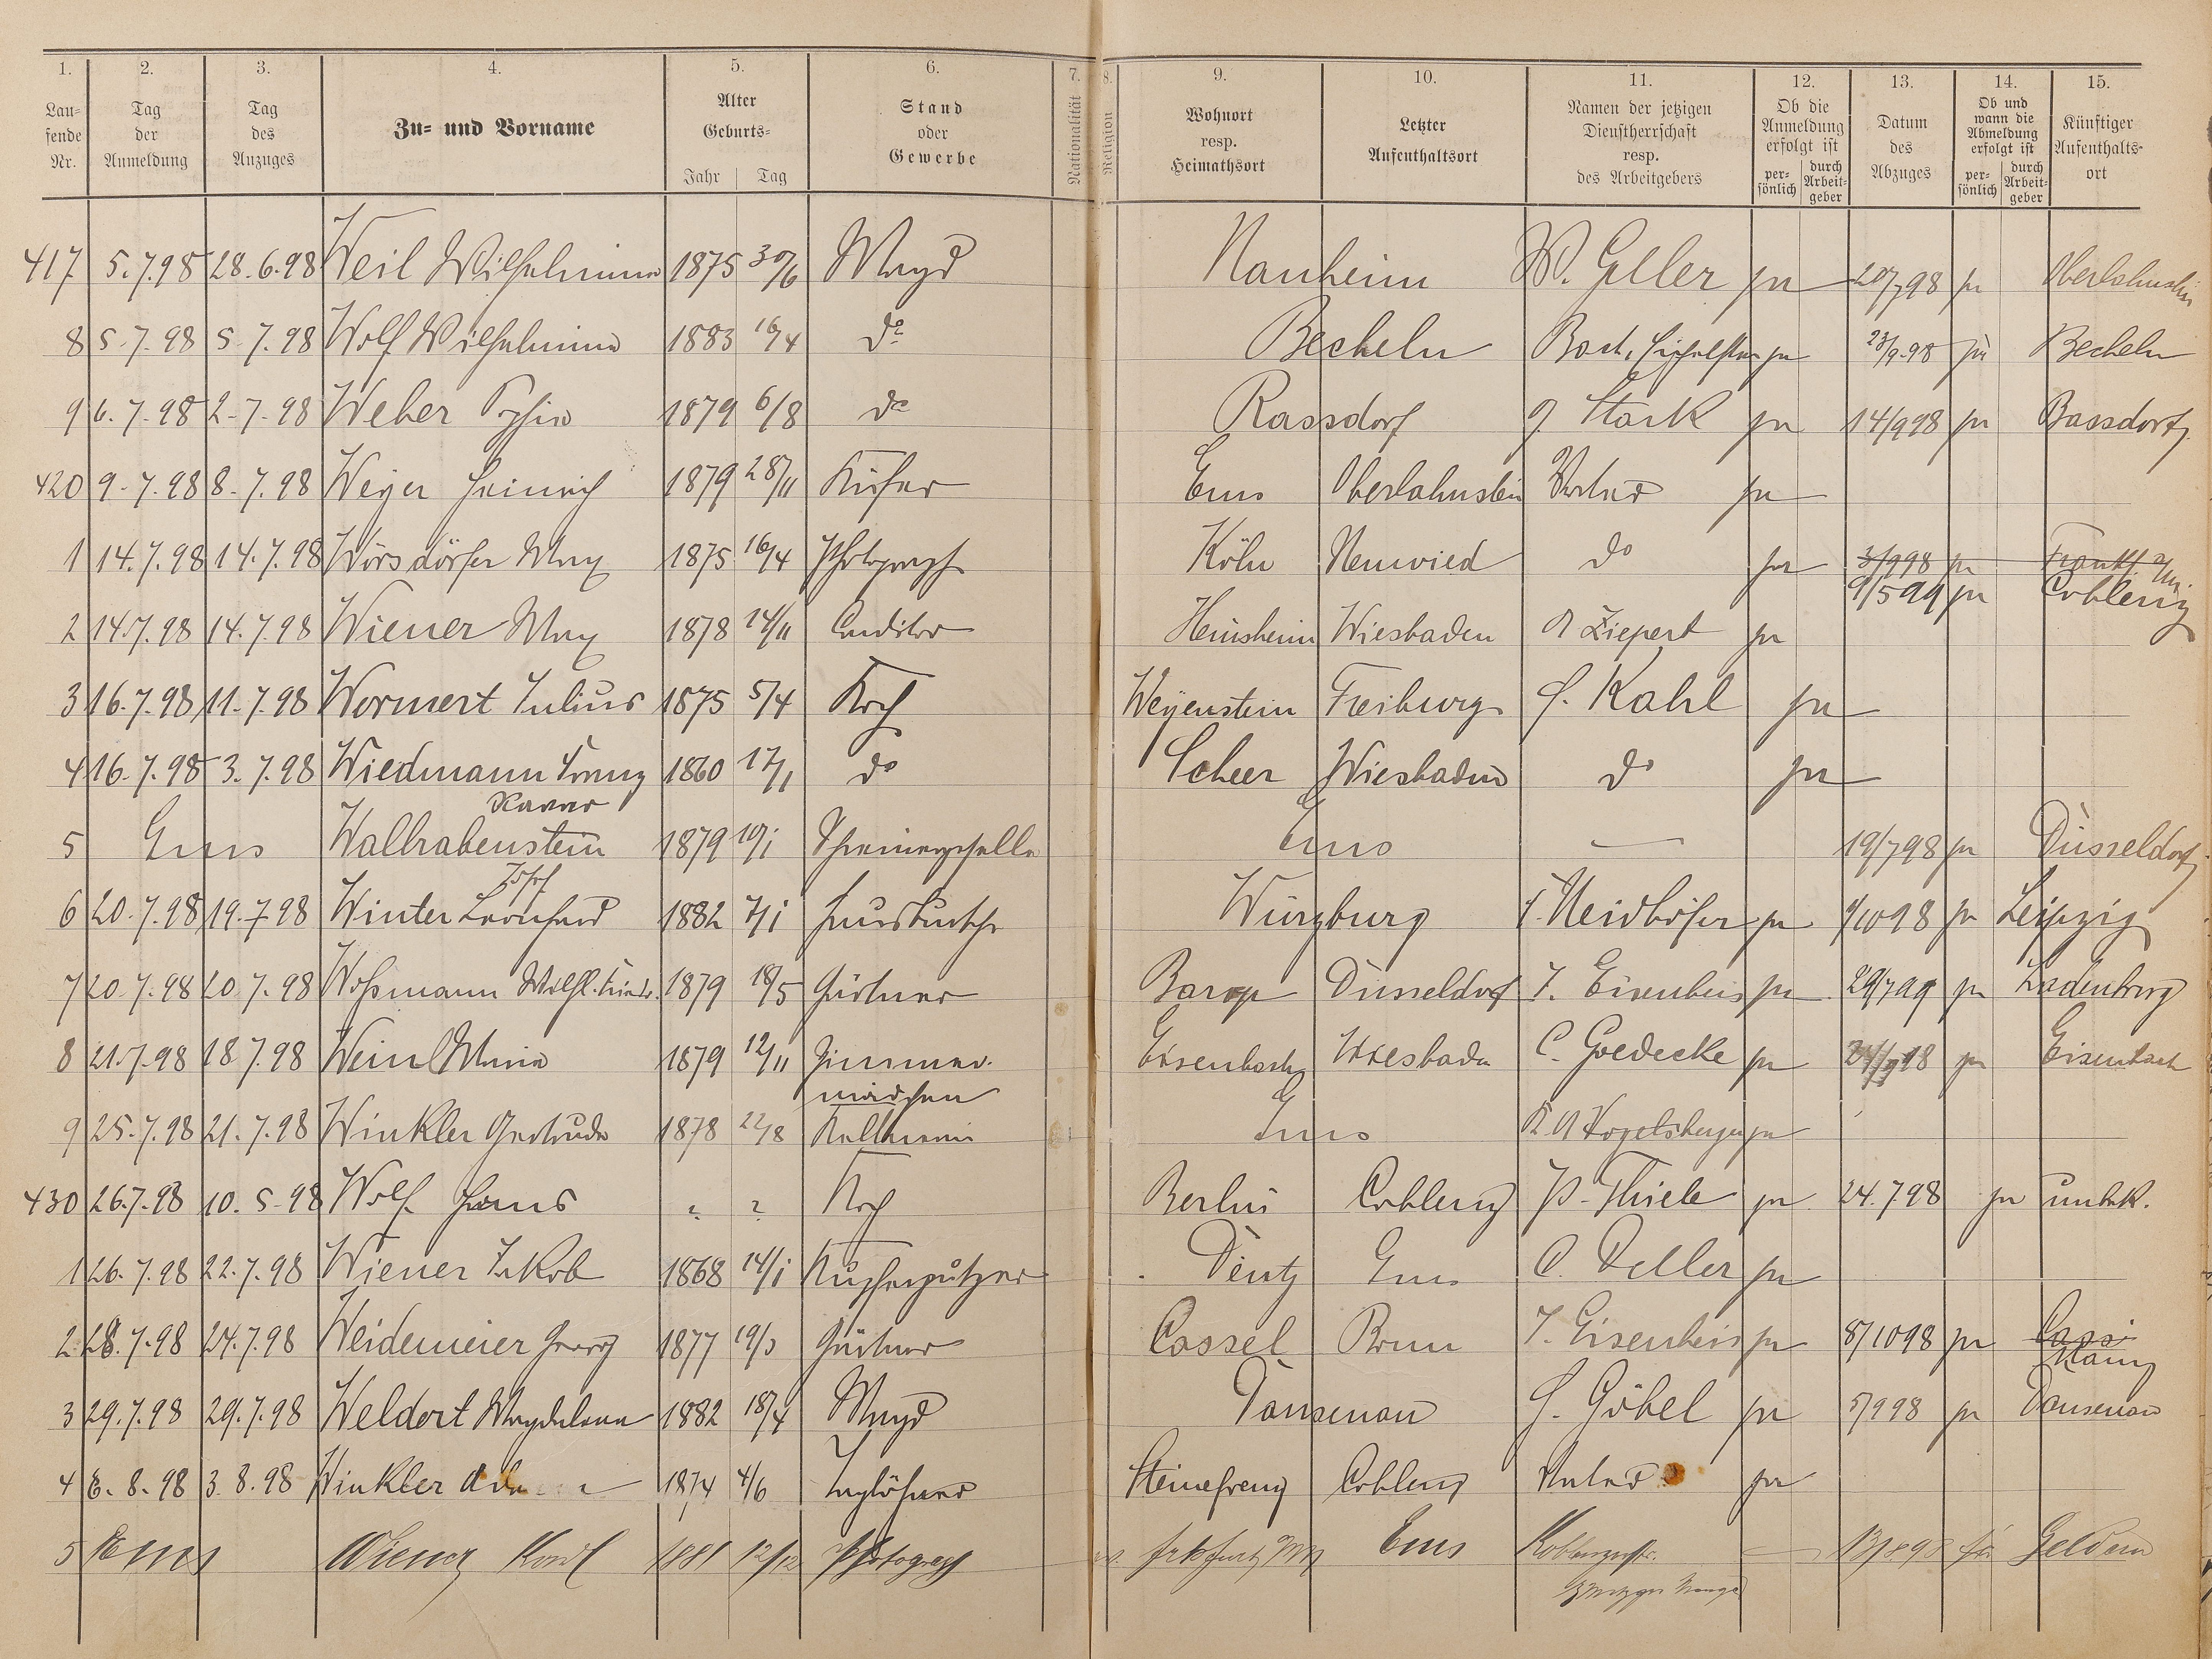 1. 2. 3. 4. 5. 6. 7. 8. 9. 10. 11. 12. 13. 14. 15.
Lau-fende Nr. Tag der Anmeldung Tag des Anzuges Zu- und Vorname Alter Geburts- Jahr Tag Stand oder Gewerbe Nationalität Religion Wohnort resp. Heimathsort Letzter Aufenthaltsort Namen der jetzigen Dienstherrschaft resp. des Arbeitgebers Ob die Anmeldung erfolgt ist per-sönlich durch Arbeit-geber Datum des Abzuges Ob und wann die Abmeldung erfolgt ist per-sönlich durch Arbeit-geber Künftiger Aufenthalts-ort
417 5.7.98 28.6.98 Weil Wilhelmine 1875 30/6 Magd Nauheim W. Geller 20/7 98 Oberlahnstein
8 5.7.98 5.7.98 Wolf Wilhelmine 1883 16/4 do Becheln 23/9.98 Becheln
9 6.7.98 2.7.98 Weber 1879 6/8 do Rassdorf Stark 14/9 98 Bassdorf
420 9.7.98 8.7.98 Weyer Heinrich 1879 28/11 Küfer Ems Oberlahnstein
1 14.7.98 14.7.98 Wörsdörfer Max 1875 16/4 Photograph Köln Neuwied do 3/9 98 Frankf. a/M
9/5 99 Coblenz
2 14.7.98 14.7.98 Wiener Max 1878 14/11 Conditor Heinsheim Wiesbaden Ziepert
3 16.7.98 11.7.98 Wormert Julius 1875 5/4 Koch Weyenstein Freiburg Kahl
4 16.7.98 3.7.98 Wiedmann Franz 1860 17/1 do Scheer Wiesbaden do
Xaver
5 Ems Wallrabenstein 1879 10/1 Schreinergeselle Ems — 19/7 98 Düsseldorf
Josef
6 20.7.98 19.7.98 Winter Leonhard 1882 7/1 Hausbursche Würzburg Neidhöfer 1/10 98 Leipzig
7 20.7.98 20.7.98 Woßmann 1879 18/5 Gärtner Barop Düsseldorf J. Eisenbeis 29/7 99 Ladenburg
8 21.7.98 18.7.98 Weinl Maria 1879 12/11 Zimmer- Eisenbach Wiesbaden C. Goedecke Eisenbach
mädchen
9 25.7.98 21.7.98 Winkler Gertrude 1878 22/8 Kellnerin Ems Vogelsberger
430 26.7.98 10.5.98 Wolf Hans ? ? Koch Berlin Coblenz P. Thiele 24.7 98 unbek.
1 26.7.98 22.7.98 Wiener Jakob 1868 14/1 Kupferputzer Deutz Ems C. Deller
2 28.7.98 24.7.98 Weidemeier Georg 1877 19/3 Gärtner Cassel Bonn J. Eisenbeis 8/10 98 Cass
Mainz
3 29.7.98 29.7.98 Weldert Magdalena 1882 18/4 Magd Dausenau Göbel 5/9 98 Dausenau
4 6.8.98 3.8.98 Winkler 1874 4/6 Taglöhner Steinefrenz Coblenz
5 Ems Wiener Karl 1881 12/12 Photograph Ems 13/8 98 Geldern